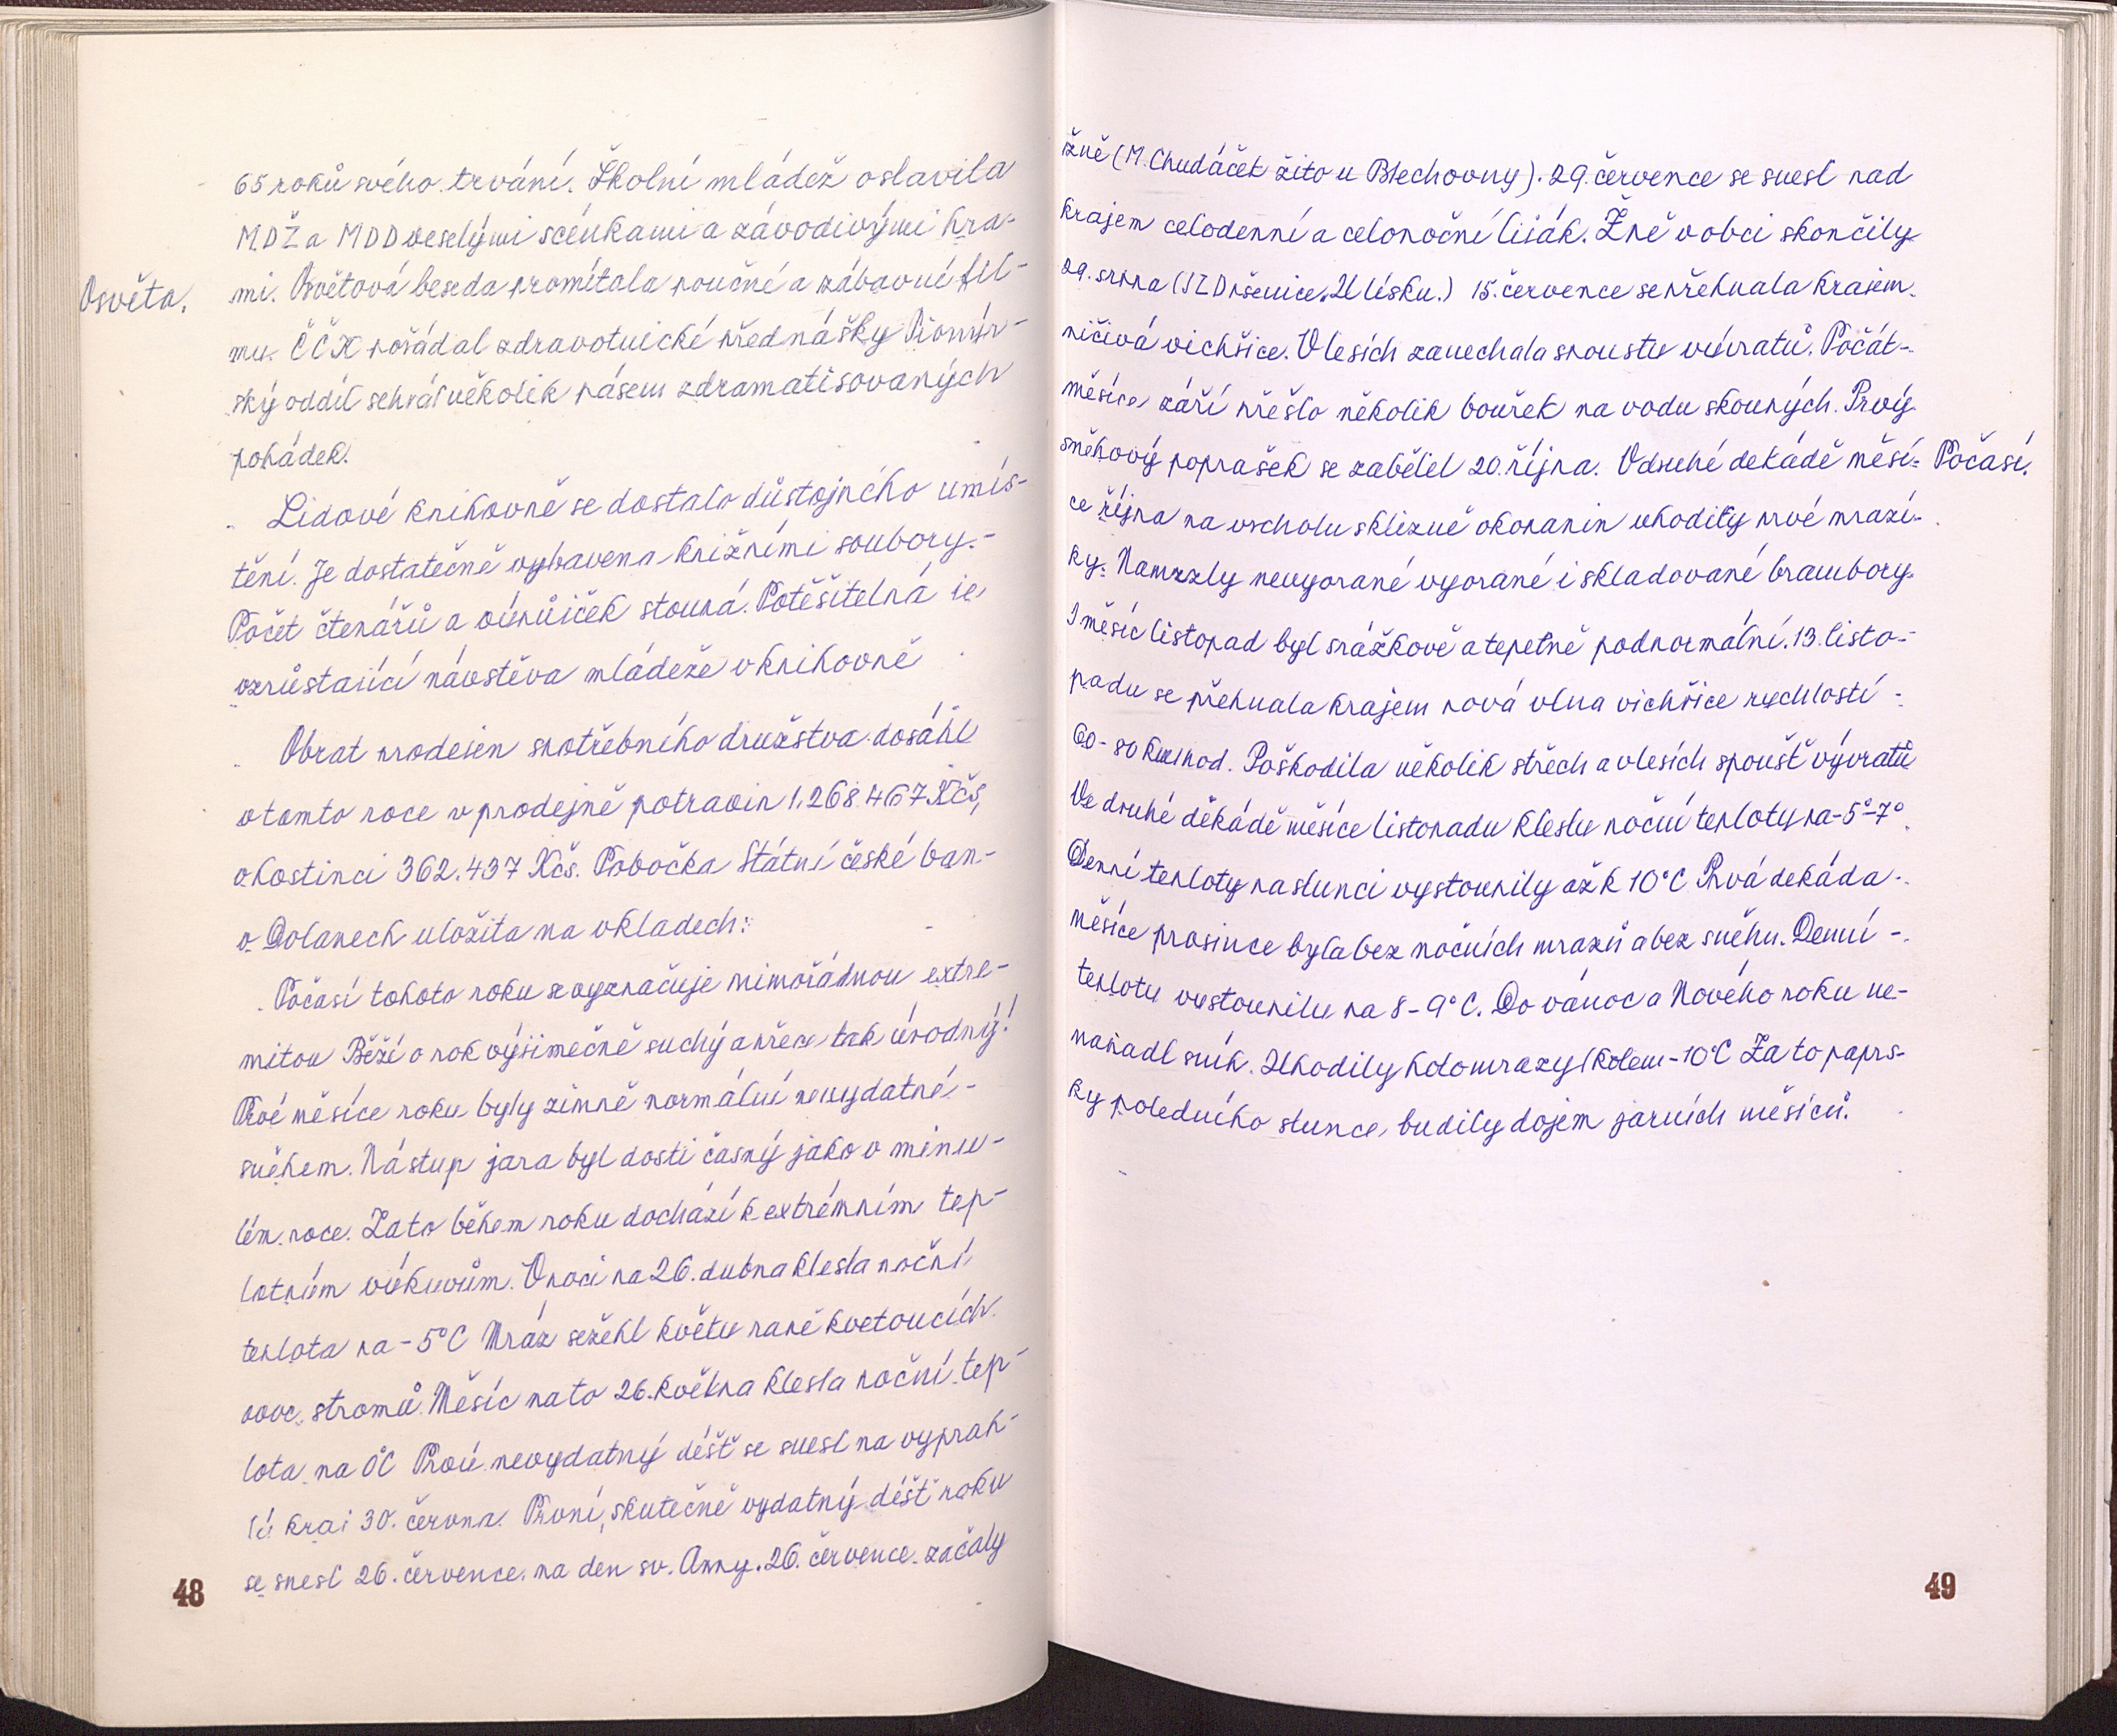 65 roků svého trvání. Školní mládež oslavila
MDŽ a MDD veselými scénkami a závodivými hra-
Osvěta.
mi. Osvětová beseda promítala poučné a zábavné fil-
my. ČČK pořádal zdravotnické přednášky Pionýr-
ský oddíl sehrál několik pásem zdramatisovaných
pohádek.
Lidové knihovně se dostalo důstojného umís-
tění. Je dostatečně vybavena knižními soubory.-
Počet čtenářů a výpůjček stoupá. Potěšitelná je
vzrůstající návstěva mládeže v knihovně
Obrat prodejen spotřebního družstva dosáhl
v tomto roce v prodejně potravin 1,268.467 Kčs,
v hostinci 362.437 Kčs. Pobočka Státní české ban-
v Dolanech uložita na vkladech:
Počasí tohoto roku se vyznačuje mimořádnou extre-
mitou Běží o rok výjimečně suchý a přece tak úrodný!
Prvé měsíce roku byly zimně normální nevydatné-
sněhem. Nástup jara byl dosti časný jako v minu-
lém roce. Zato během roku dochází k extrémním tep-
lotním výkyvům. V noci na 26. dubna klesla noční
teplota na -5°C Mráz sežehl květy raně kvetoucích
ovoc. stromů. Měsíc na to 26. května klesla noční tep-
lota na 0°C Prvý nevydatný déšť se snesl na vyprah-
lý kraj 30. června. První, skutečně vydatný déšť roku
se snesl 26. července. na den sv. Anny. 26. července začaly
48
žně (M. Chudáček žito u Blechovny). 29. července se snesl nad
krajem celodenní a celonoční liják. Žně v obci skončily
29. srpna (JZD pšenice U lísku.) 15. července se přehnala krajem
ničivá vichřice. V lesích zanechala spoustu vývratů. Počát-
měsíce září přešlo několik bouřek na vodu skoupých. Prvý
sněhový poprašek se zabělel 20. října. V druhé dekádě měsí-
Počasí.
ce října na vrcholu sklizně okopanin uhodily prvé mrazí-
ky. Namrzly nevyorané vyorané i skladované brambory.
I měsíc listopad byl srážkově a tepelně podnormální. 13. listo-
padu se přehnala krajem nová vlna vichřice rychlostí
60-80 km/hod. Poškodila několik střech a v lesích spoušť vývratů
Ve druhé děkádě měsíce listopadu klesly noční teploty na -5°-7°
Denní teploty na slunci vystoupily až k 10°C Prvá dekáda
měsíce prosince byla bez nočních mrazů a bez sněhu. Denní -
teploty vystoupily na 8-9°C. Do vánoc a Nového roku ne-
napadl sníh. Uhodily holomrazy kolem -10°C Za to paprs-
ky poledního slunce, budily dojem jarních měsíců.
49